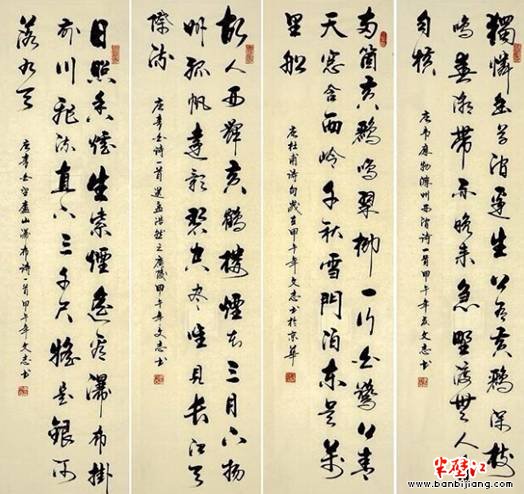 獨憐幽草澗邊生上有黃鸝深樹
鳴春潮帶雨晚來急野渡無人舟
自橫
唐韋應物滁州西澗詩一首甲午年夏文志书
兩箇黃鸝鳴翠柳一行白鷺上青
天窓含西岭千秋雪門泊東吳萬
里船
唐杜甫詩句歲在甲午年文志书於京華
故人西辭黃鶴樓煙花三月下揚
州孤帆遠影碧空盡唯見長江天
際流
唐李白诗一首送孟浩然之廣陵甲午年文志书
日照香炉生紫煙遙看瀑布掛
前川飛流直下三千尺疑是銀河
落九天
唐李白望廬山瀑布诗一首甲午年文志书
半壁江
www.banbijiang.com